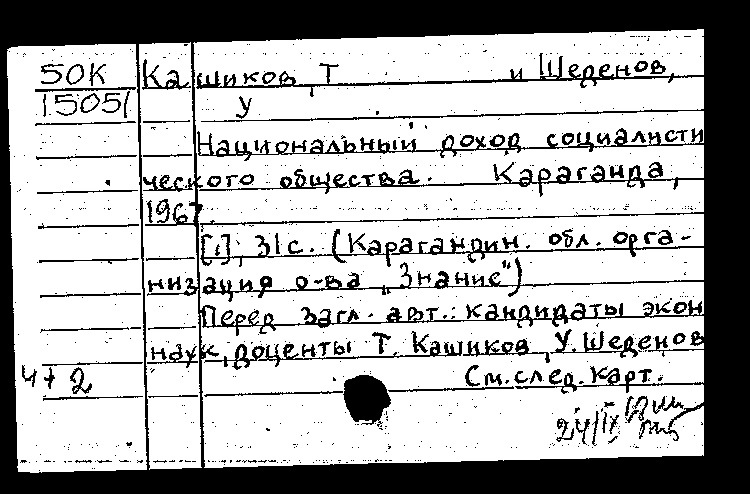 50К Кашиков, Т и Шеденов,
15051 У
Национальный доход социалисти
ческого общества. Караганда,
1967.
[1], 31с. (Карагандин. обл. орга-
низация о-ва „Знание")
Перед загл. авт.: кандидаты экон
наук, доценты Т. Кашиков, У. Шеденов
4+2 См. след. карт.
24/IX